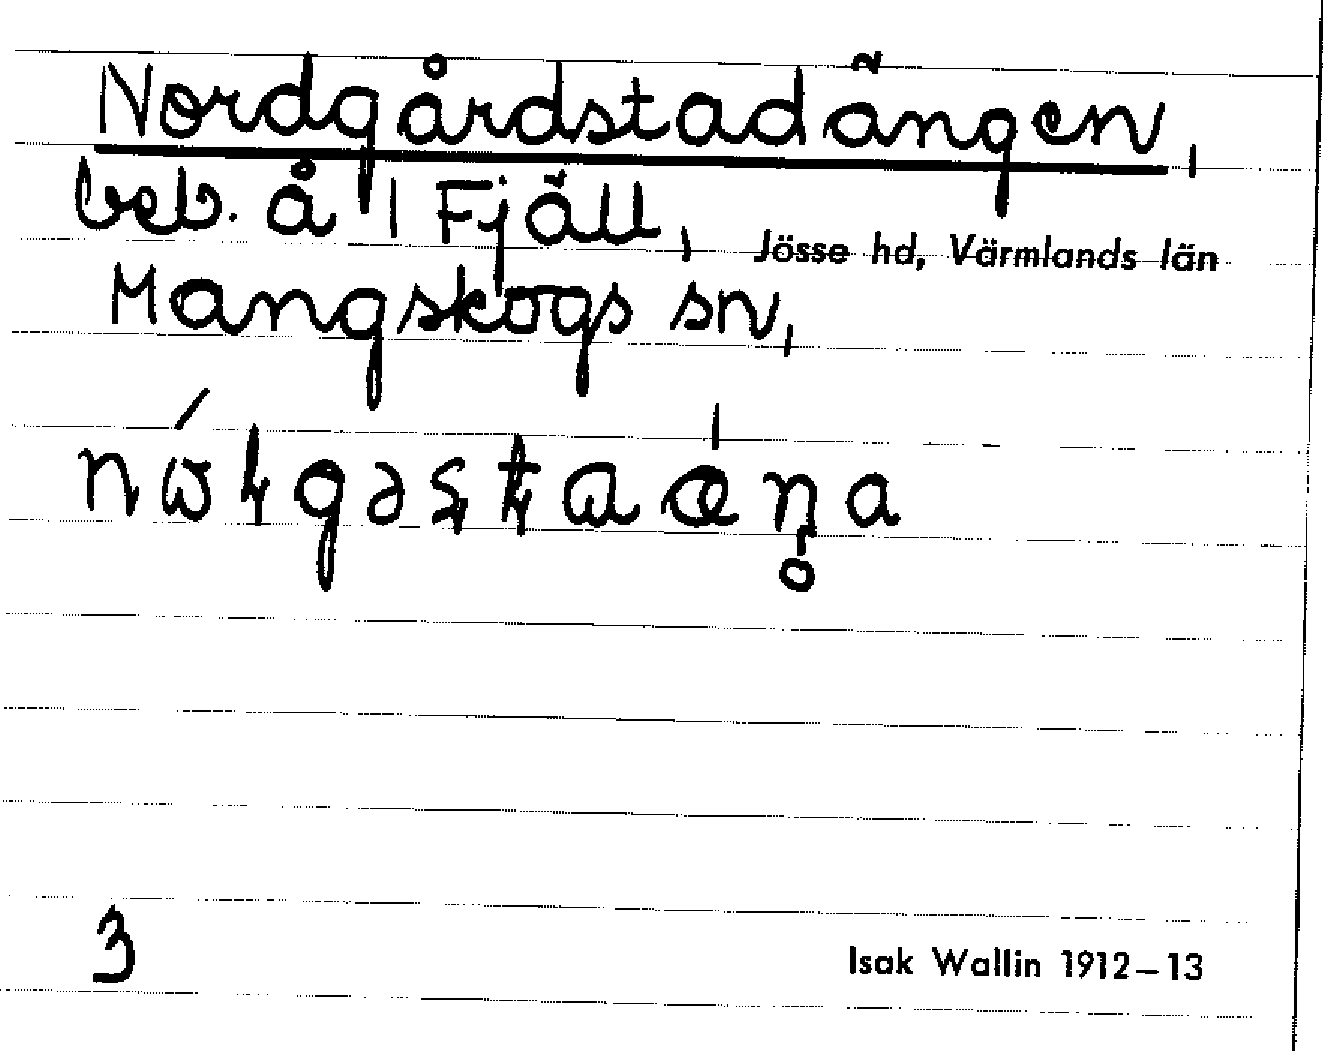 Nordgårdstadängen,
beb. å 1 Fjäll, Jösse hd, Värmlands län
Mangskogs sn,
3
Isak Wallin 1912–13